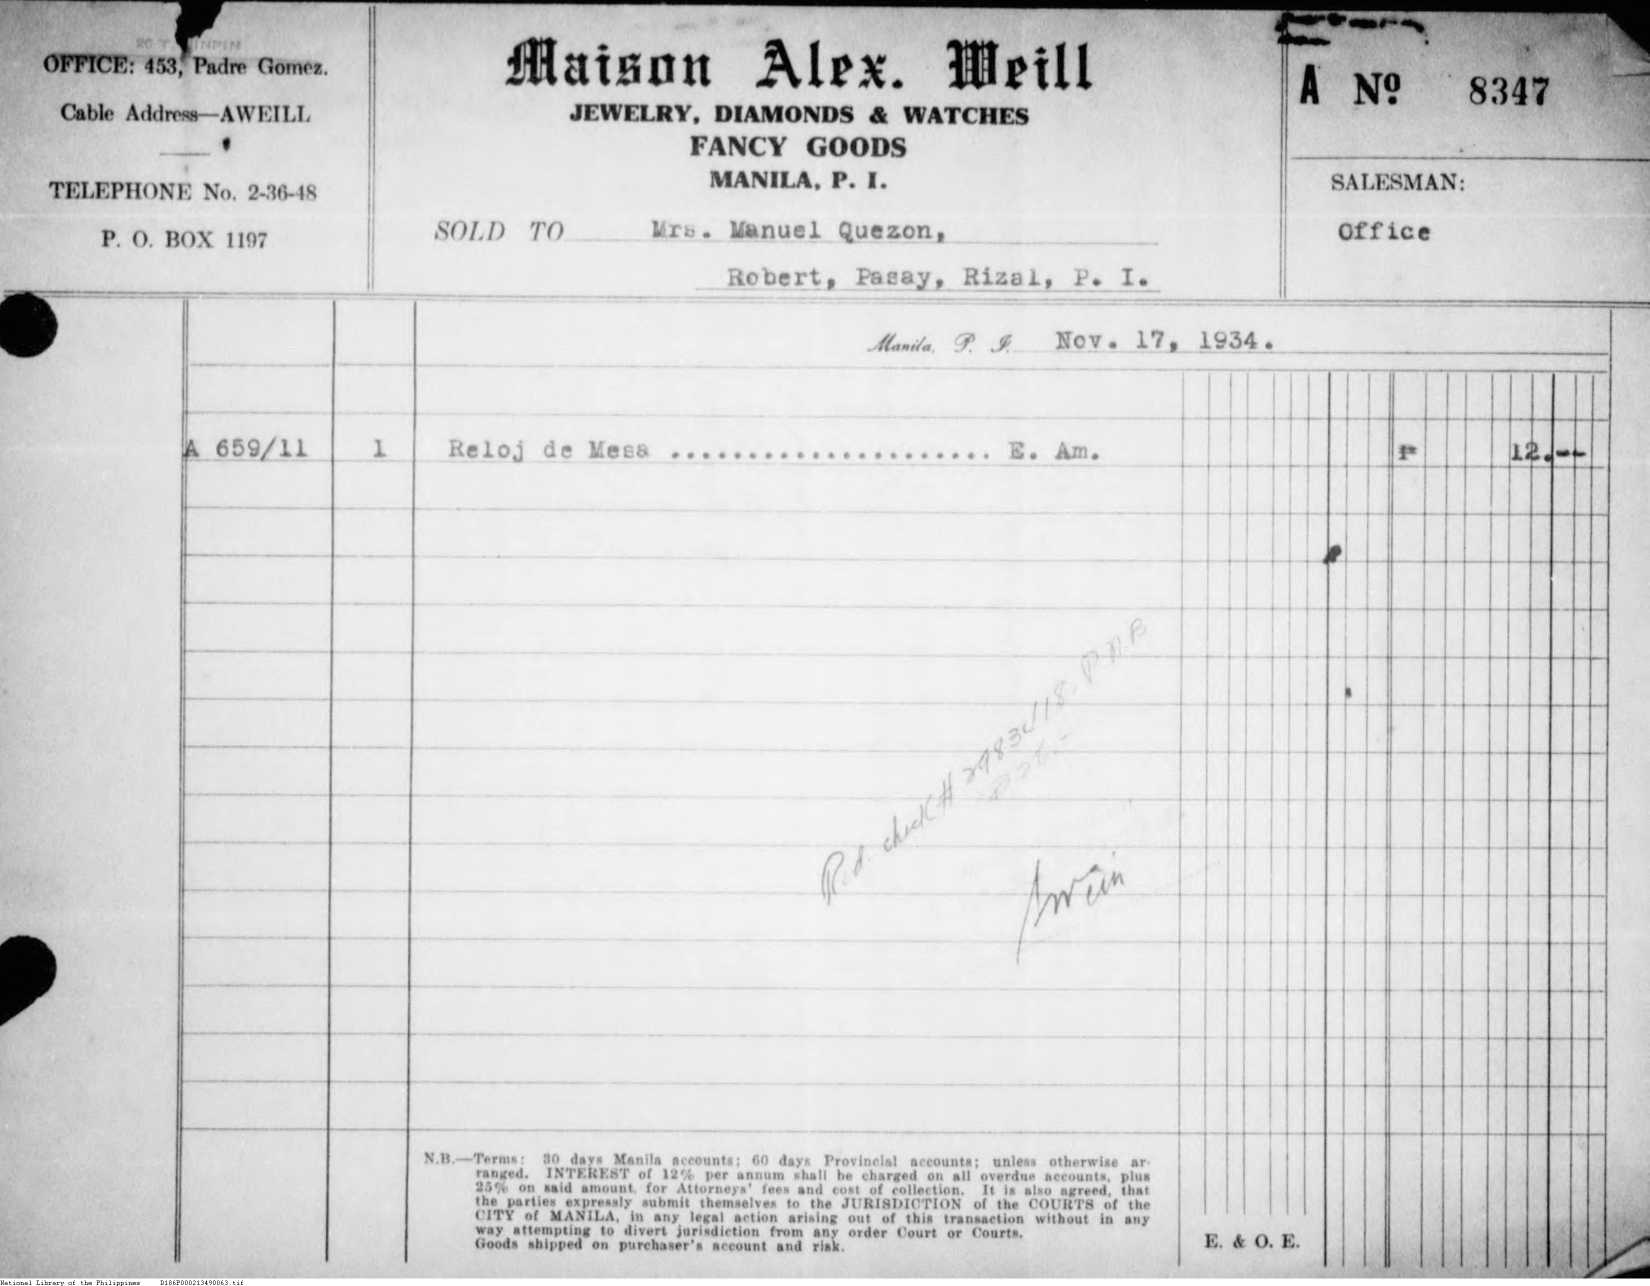 OFFICE: 453, Padre Gomez.
Cable Address—AWEILL
TELEPHONE No. 2-36-48
P. O. BOX 1197
Maison Alex. Weill
JEWELRY, DIAMONDS & WATCHES
FANCY GOODS
MANILA, P. I.
SOLD TO Mrs. Manuel Quezon,
Robert, Pasay, Rizal, P. I.
A Nº 8347
SALESMAN:
Office
Manila, P. I. Nov. 17, 1934.
A 659/11 1 Reloj de Mesa ..................... E. Am. ₱ 12.--
P.N.B
check #
N.B.—Terms: 30 days Manila accounts; 60 days Provincial accounts; unless otherwise ar-
ranged. INTEREST of 12% per annum shall be charged on all overdue accounts, plus
25% on said amount, for Attorneys' fees and cost of collection. It is also agreed, that
the parties expressly submit themselves to the JURISDICTION of the COURTS of the
CITY of MANILA, in any legal action arising out of this transaction without in any
way attempting to divert jurisdiction from any order Court or Courts.
Goods shipped on purchaser's account and risk.
E. & O. E.
National Library of the Philippines D186P000213490063.tif